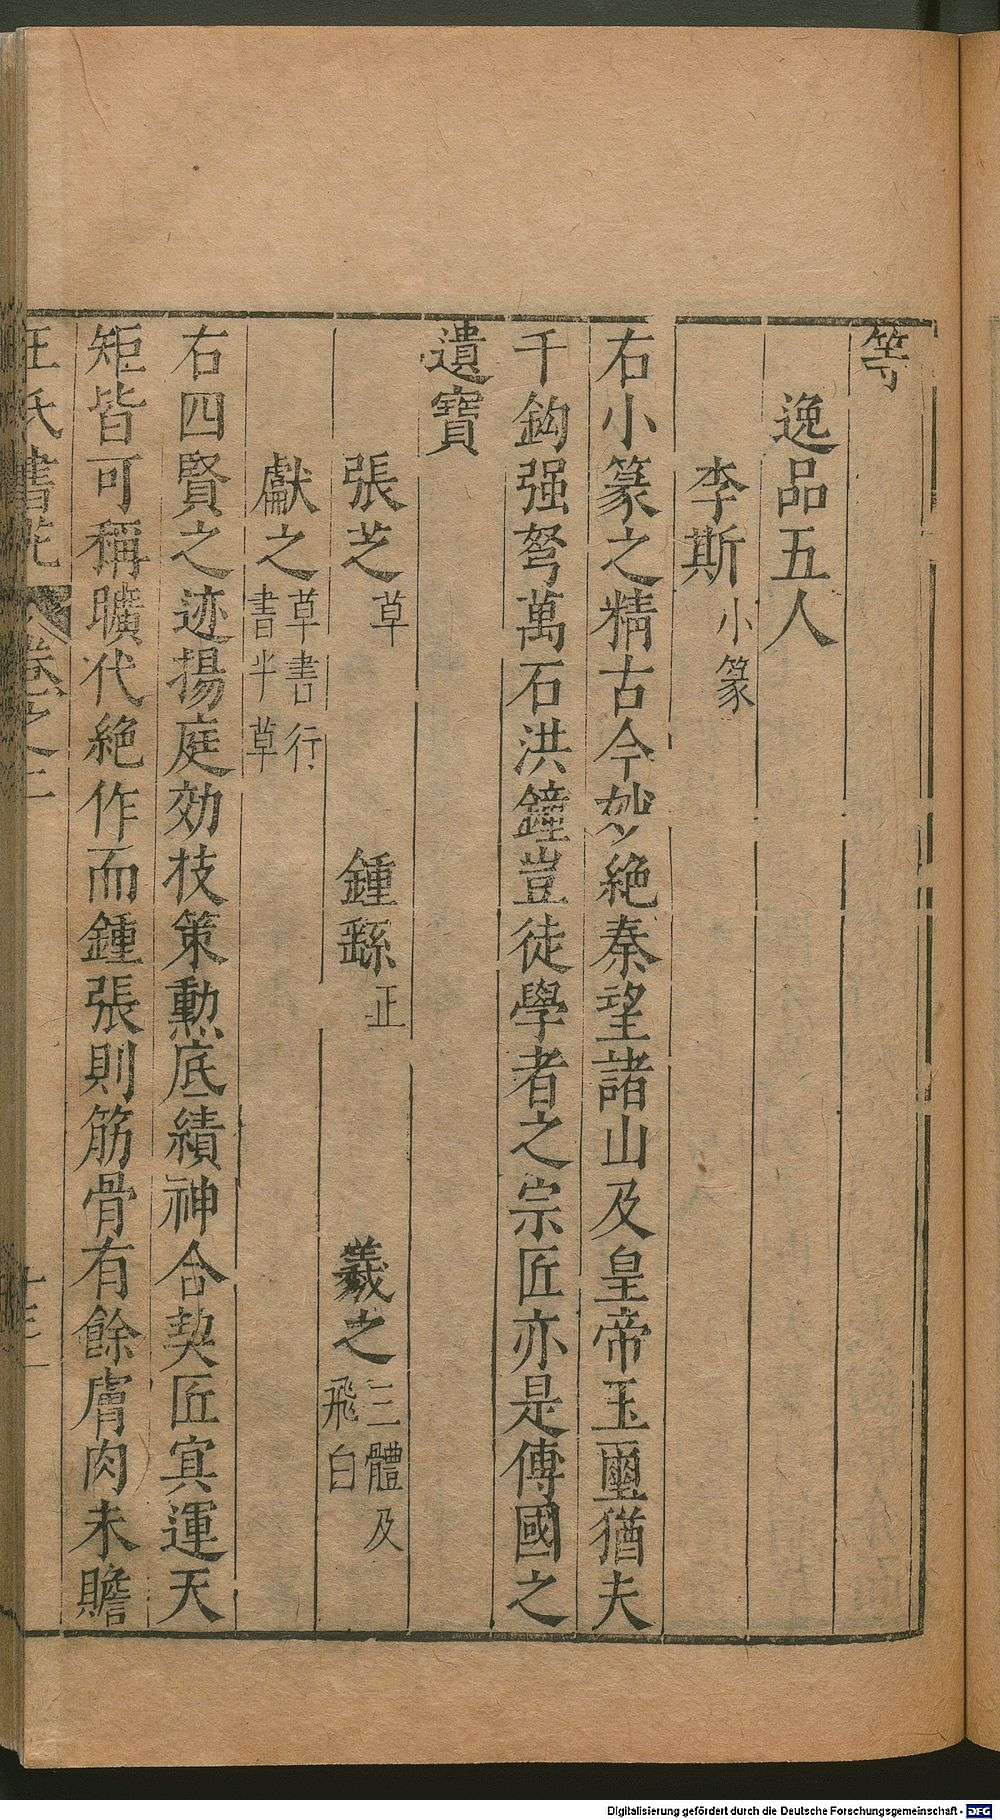 等
逸品五人
李斯小篆
右小篆之精古今妙絶秦望諸山及皇帝玉璽猶夫
千鈎强弩萬石洪鐘豈徒學者之宗匠亦是傳國之
遺寶
張芝草 鍾繇正 羲之三體及飛白
獻之草書行書半草
右四賢之迹揚庭効技策勲底績神合契匠㝠運天
矩皆可稱曠代絶作而鍾張則筋骨有餘膚肉未贍
王氏書苑 卷之二 十三
Digitalisierung gefördert durch die Deutsche Forschungsgemeinschaft - DFG